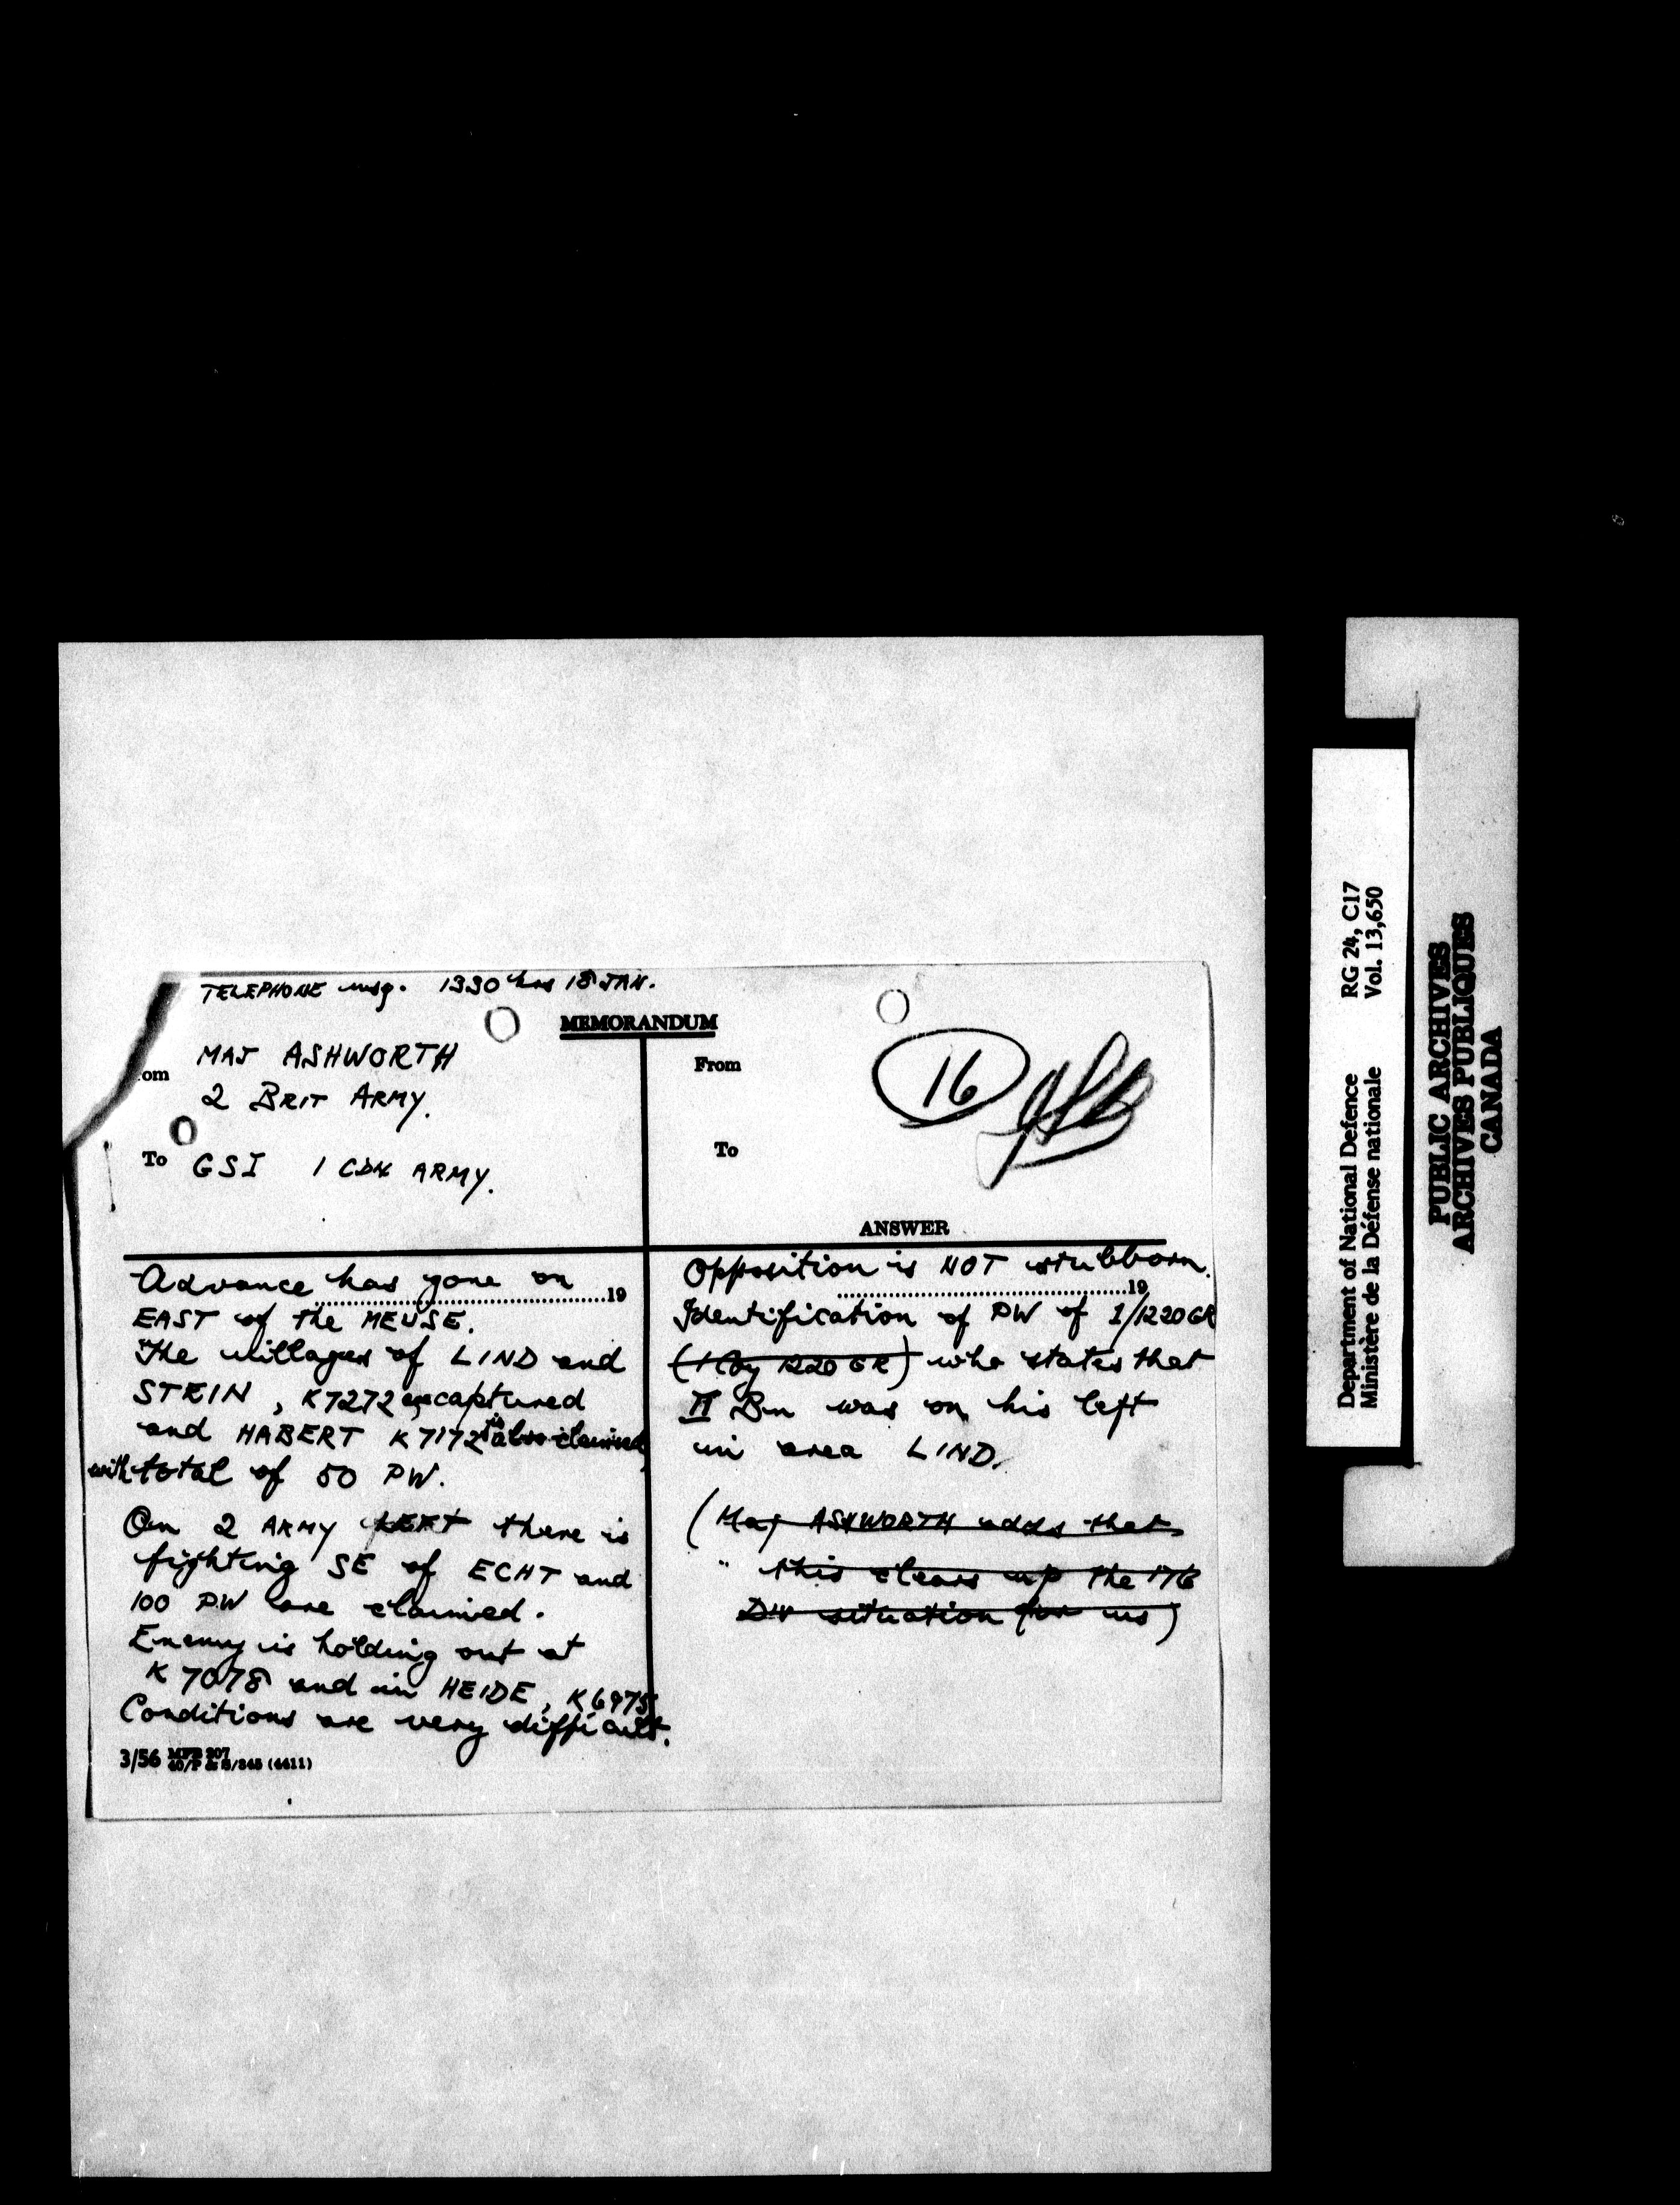 TELEPHONE msg. 1330 hrs 18 JAN.
MEMORANDUM
om MAJ ASHWORTH
2 BRIT ARMY.
To GSI 1 CDN ARMY.
From
16
To
ANSWER
Advance has gone on
19
EAST of the MEUSE.
The villages of LIND and
STEIN, K7272 captured
and HABERT K7172 also claimed
with total of 50 PW.
On 2 ARMY there is
fighting SE of ECHT and
100 PW are claimed.
Enemy is holding out at
K 7078 and in HEIDE, K6975
Conditions are very difficult.
3/56
Opposition is NOT stubborn.
19
Identification of PW of 1/1220 GR
(1 Coy 1220 GR) who states that
II Bn was on his left
in area LIND.
(Maj ASHWORTH adds that
" this clears up the 176
Div situation for us)
Department of National Defence RG 24, C17
Ministère de la Défense nationale Vol. 13,650
PUBLIC ARCHIVES
ARCHIVES PUBLIQUES
CANADA